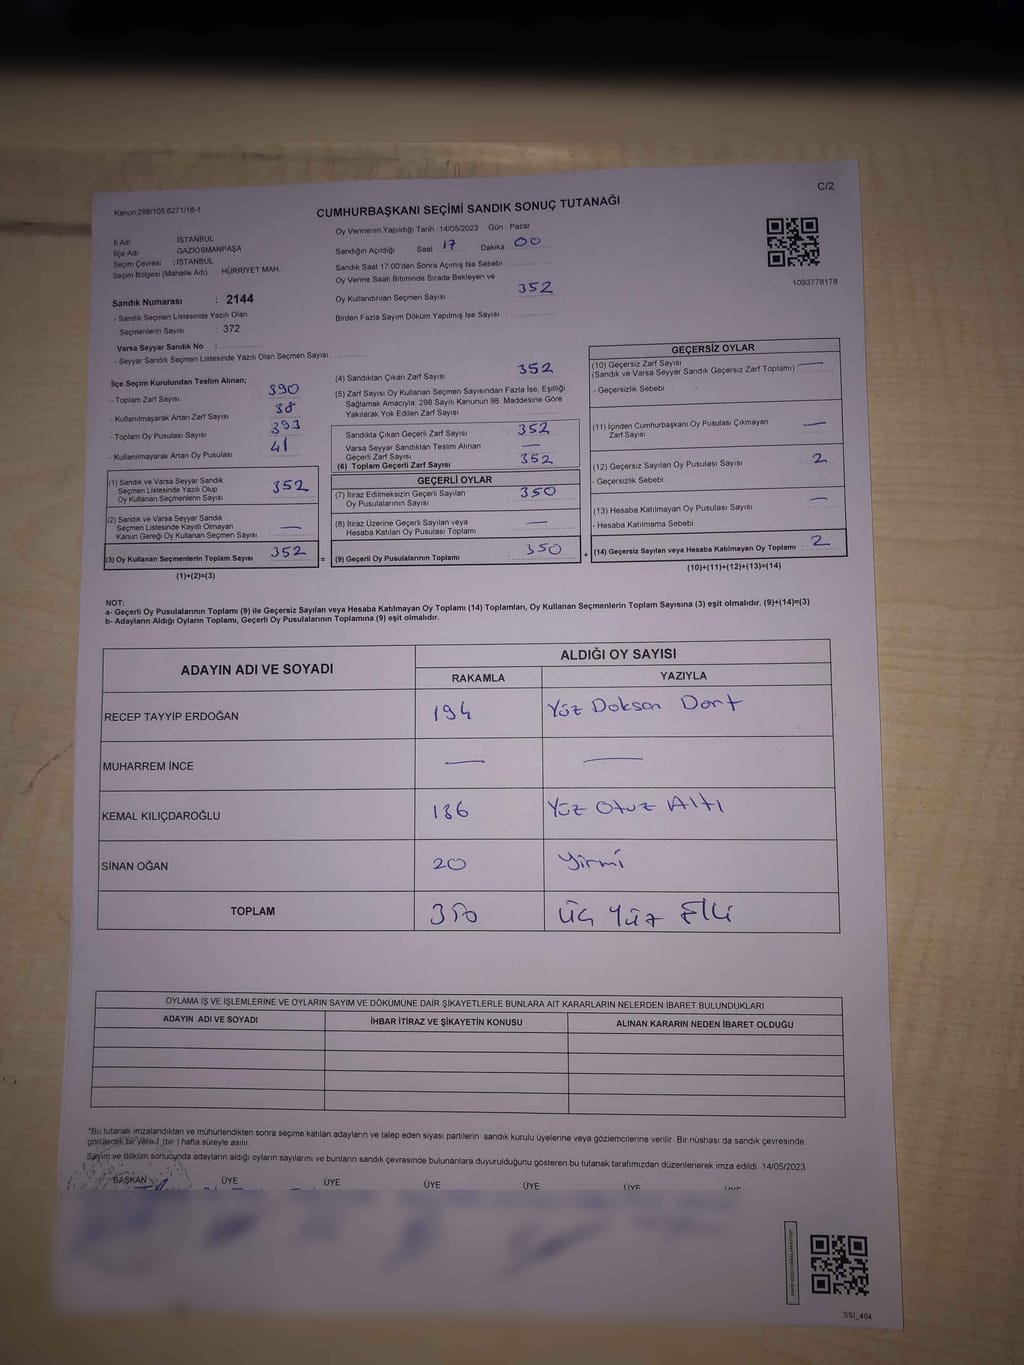 Kanun:298/105;6271/18-1
C/2
CUMHURBAŞKANI SEÇİMİ SANDIK SONUÇ TUTANAĞI
İl Adı İSTANBUL
İlçe Adı GAZİOSMANPAŞA
Seçim Çevresi : İSTANBUL
Seçim Bölgesi (Mahalle Adı) : HÜRRİYET MAH
Oy Vermenin Yapıldığı Tarih : 14/05/2023 Gün : Pazar
Sandığın Açıldığı Saat : 17 Dakika : 00
Sandık Saat 17:00'den Sonra Açılmış İse Sebebi :
Oy Verme Saati Bitiminde Sırada Bekleyen ve
Oy Kullandırılan Seçmen Sayısı : 352
Birden Fazla Sayım Döküm Yapılmış İse Sayısı :
1093778178
Sandık Numarası : 2144
- Sandık Seçmen Listesinde Yazılı Olan
Seçmenlerin Sayısı : 372
Varsa Seyyar Sandık No :
- Seyyar Sandık Seçmen Listesinde Yazılı Olan Seçmen Sayısı:
İlçe Seçim Kurulundan Teslim Alınan;
- Toplam Zarf Sayısı : 390
- Kullanılmayarak Artan Zarf Sayısı : 38
- Toplam Oy Pusulası Sayısı : 393
- Kullanılmayarak Artan Oy Pusulası : 41
(1) Sandık ve Varsa Seyyar Sandık
Seçmen Listesinde Yazılı Olup
Oy Kullanan Seçmenlerin Sayısı : 352
(2) Sandık ve Varsa Seyyar Sandık
Seçmen Listesinde Kayıtlı Olmayan
Kanun Gereği Oy Kullanan Seçmen Sayısı : —
(3) Oy Kullanan Seçmenlerin Toplam Sayısı : 352 =
(1)+(2)=(3)
(4) Sandıktan Çıkan Zarf Sayısı : 352
(5) Zarf Sayısı Oy Kullanan Seçmen Sayısından Fazla İse, Eşitliği
Sağlamak Amacıyla; 298 Sayılı Kanunun 98. Maddesine Göre
Yakılarak Yok Edilen Zarf Sayısı :
Sandıkta Çıkan Geçerli Zarf Sayısı : 352
Varsa Seyyar Sandıktan Teslim Alınan
Geçerli Zarf Sayısı : —
(6) Toplam Geçerli Zarf Sayısı : 352
GEÇERLİ OYLAR
(7) İtiraz Edilmeksizin Geçerli Sayılan
Oy Pusulalarının Sayısı : 350
(8) İtiraz Üzerine Geçerli Sayılan veya
Hesaba Katılan Oy Pusulası Toplamı : —
(9) Geçerli Oy Pusulalarının Toplamı : 350 +
GEÇERSİZ OYLAR
(10) Geçersiz Zarf Sayısı
(Sandık ve Varsa Seyyar Sandık Geçersiz Zarf Toplamı) : —
- Geçersizlik Sebebi
(11) İçinden Cumhurbaşkanı Oy Pusulası Çıkmayan
Zarf Sayısı : —
(12) Geçersiz Sayılan Oy Pusulası Sayısı : 2
- Geçersizlik Sebebi
(13) Hesaba Katılmayan Oy Pusulası Sayısı : —
- Hesaba Katılmama Sebebi
(14) Geçersiz Sayılan veya Hesaba Katılmayan Oy Toplamı : 2
(10)+(11)+(12)+(13)=(14)
NOT:
a- Geçerli Oy Pusulalarının Toplamı (9) ile Geçersiz Sayılan veya Hesaba Katılmayan Oy Toplamı (14) Toplamları, Oy Kullanan Seçmenlerin Toplam Sayısına (3) eşit olmalıdır. (9)+(14)=(3)
b- Adayların Aldığı Oyların Toplamı, Geçerli Oy Pusulalarının Toplamına (9) eşit olmalıdır.
ADAYIN ADI VE SOYADI ALDIĞI OY SAYISI
RAKAMLA YAZIYLA
RECEP TAYYİP ERDOĞAN 194 Yüz Doksan Dört
MUHARREM İNCE — —
KEMAL KILIÇDAROĞLU 136 Yüz Otuz Altı
SİNAN OĞAN 20 Yirmi
TOPLAM 350 Üç Yüz Elli
OYLAMA İŞ VE İŞLEMLERİNE VE OYLARIN SAYIM VE DÖKÜMÜNE DAİR ŞİKAYETLERLE BUNLARA AİT KARARLARIN NELERDEN İBARET BULUNDUKLARI
ADAYIN ADI VE SOYADI İHBAR İTİRAZ VE ŞİKAYETİN KONUSU ALINAN KARARIN NEDEN İBARET OLDUĞU
*Bu tutanak imzalandıktan ve mühürlendikten sonra seçime katılan adayların ve talep eden siyasi partilerin sandık kurulu üyelerine veya gözlemcilerine verilir. Bir nüshası da sandık çevresinde
görülecek bir yere 1 (bir ) hafta süreyle asılır.
Sayım ve döküm sonucunda adayların aldığı oyların sayılarını ve bunların sandık çevresinde bulunanlara duyurulduğunu gösteren bu tutanak tarafımızdan düzenlenerek imza edildi. 14/05/2023
BAŞKAN ÜYE ÜYE ÜYE ÜYE ÜYE ÜYE
SSI_404